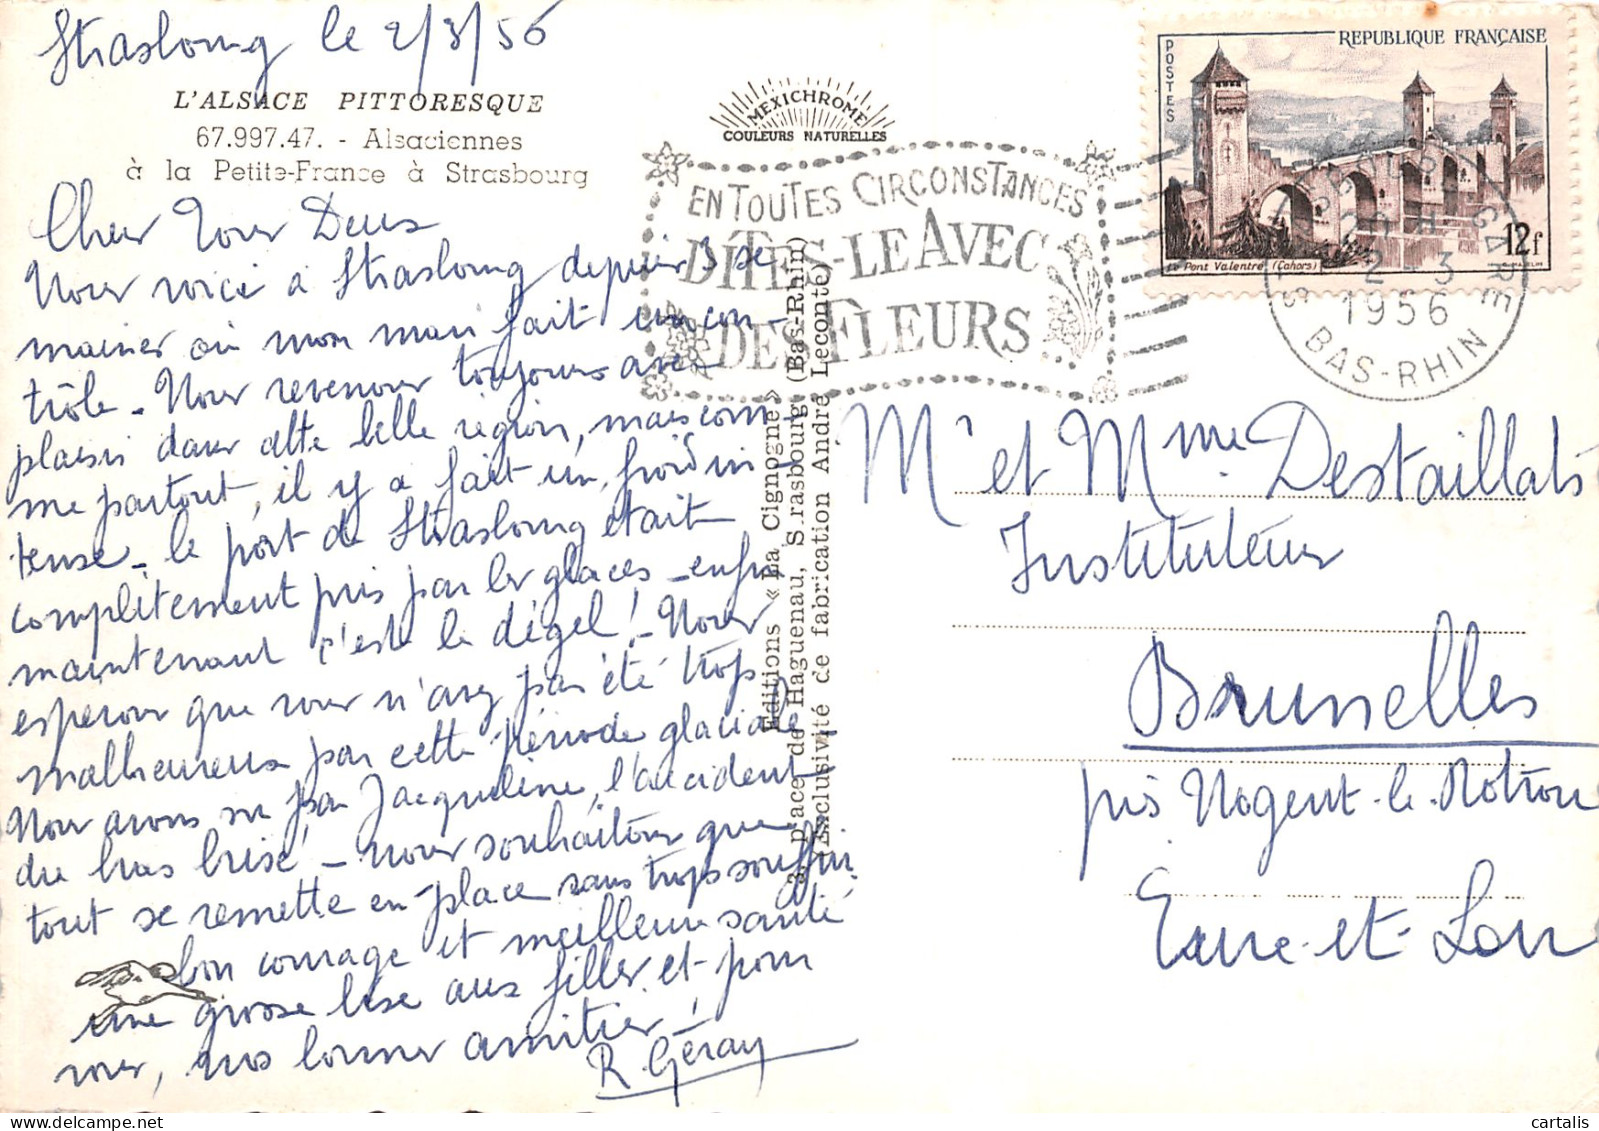 Strasbourg le 2/3/56
L'ALSACE PITTORESQUE
67.997.47. - Alsaciennes
à la Petite-France à Strasbourg
MEXICHROME
COULEURS NATURELLES
Cher vous Deux
Nous voici à Strasbourg depuis 3 se-
maines où mon mari fait un con-
trôle - Nous revenons toujours avec
plaisir dans cette belle région, mais com-
me partout, il y a fait un froid in-
tense - le port de Strasbourg était
complètement pris par les glaces - enfin
maintenant c'est le dégel ! - Nous
espérons que vous n'avez pas été trop
malheureux par cette période glaciale
Nous avons su par Jacqueline, l'accident
du bras brisé - nous souhaitons que
tout se remette en place sans trop souffrir
bon courage et meilleure santé
une grosse bise aux filles et pour
vous, nos bonnes amitiés !
R. Géray
Editions « La Cigogne »
3, place de Haguenau, S rasbourg (Bas-Rhin)
Exclusivité de fabrication André Leconte
EN TOUTES CIRCONSTANCES
DITES-LE AVEC
DES FLEURS
REPUBLIQUE FRANÇAISE
POSTES
Le Pont Valentré (Cahors)
12f
STRASBOURG GARE
20 H
2 - 3
1956
BAS-RHIN
Mr et Mme Destaillats
Instituteurs
Brunelles
près Nogent-le-Rotrou
Eure-et-Loir
cartalis